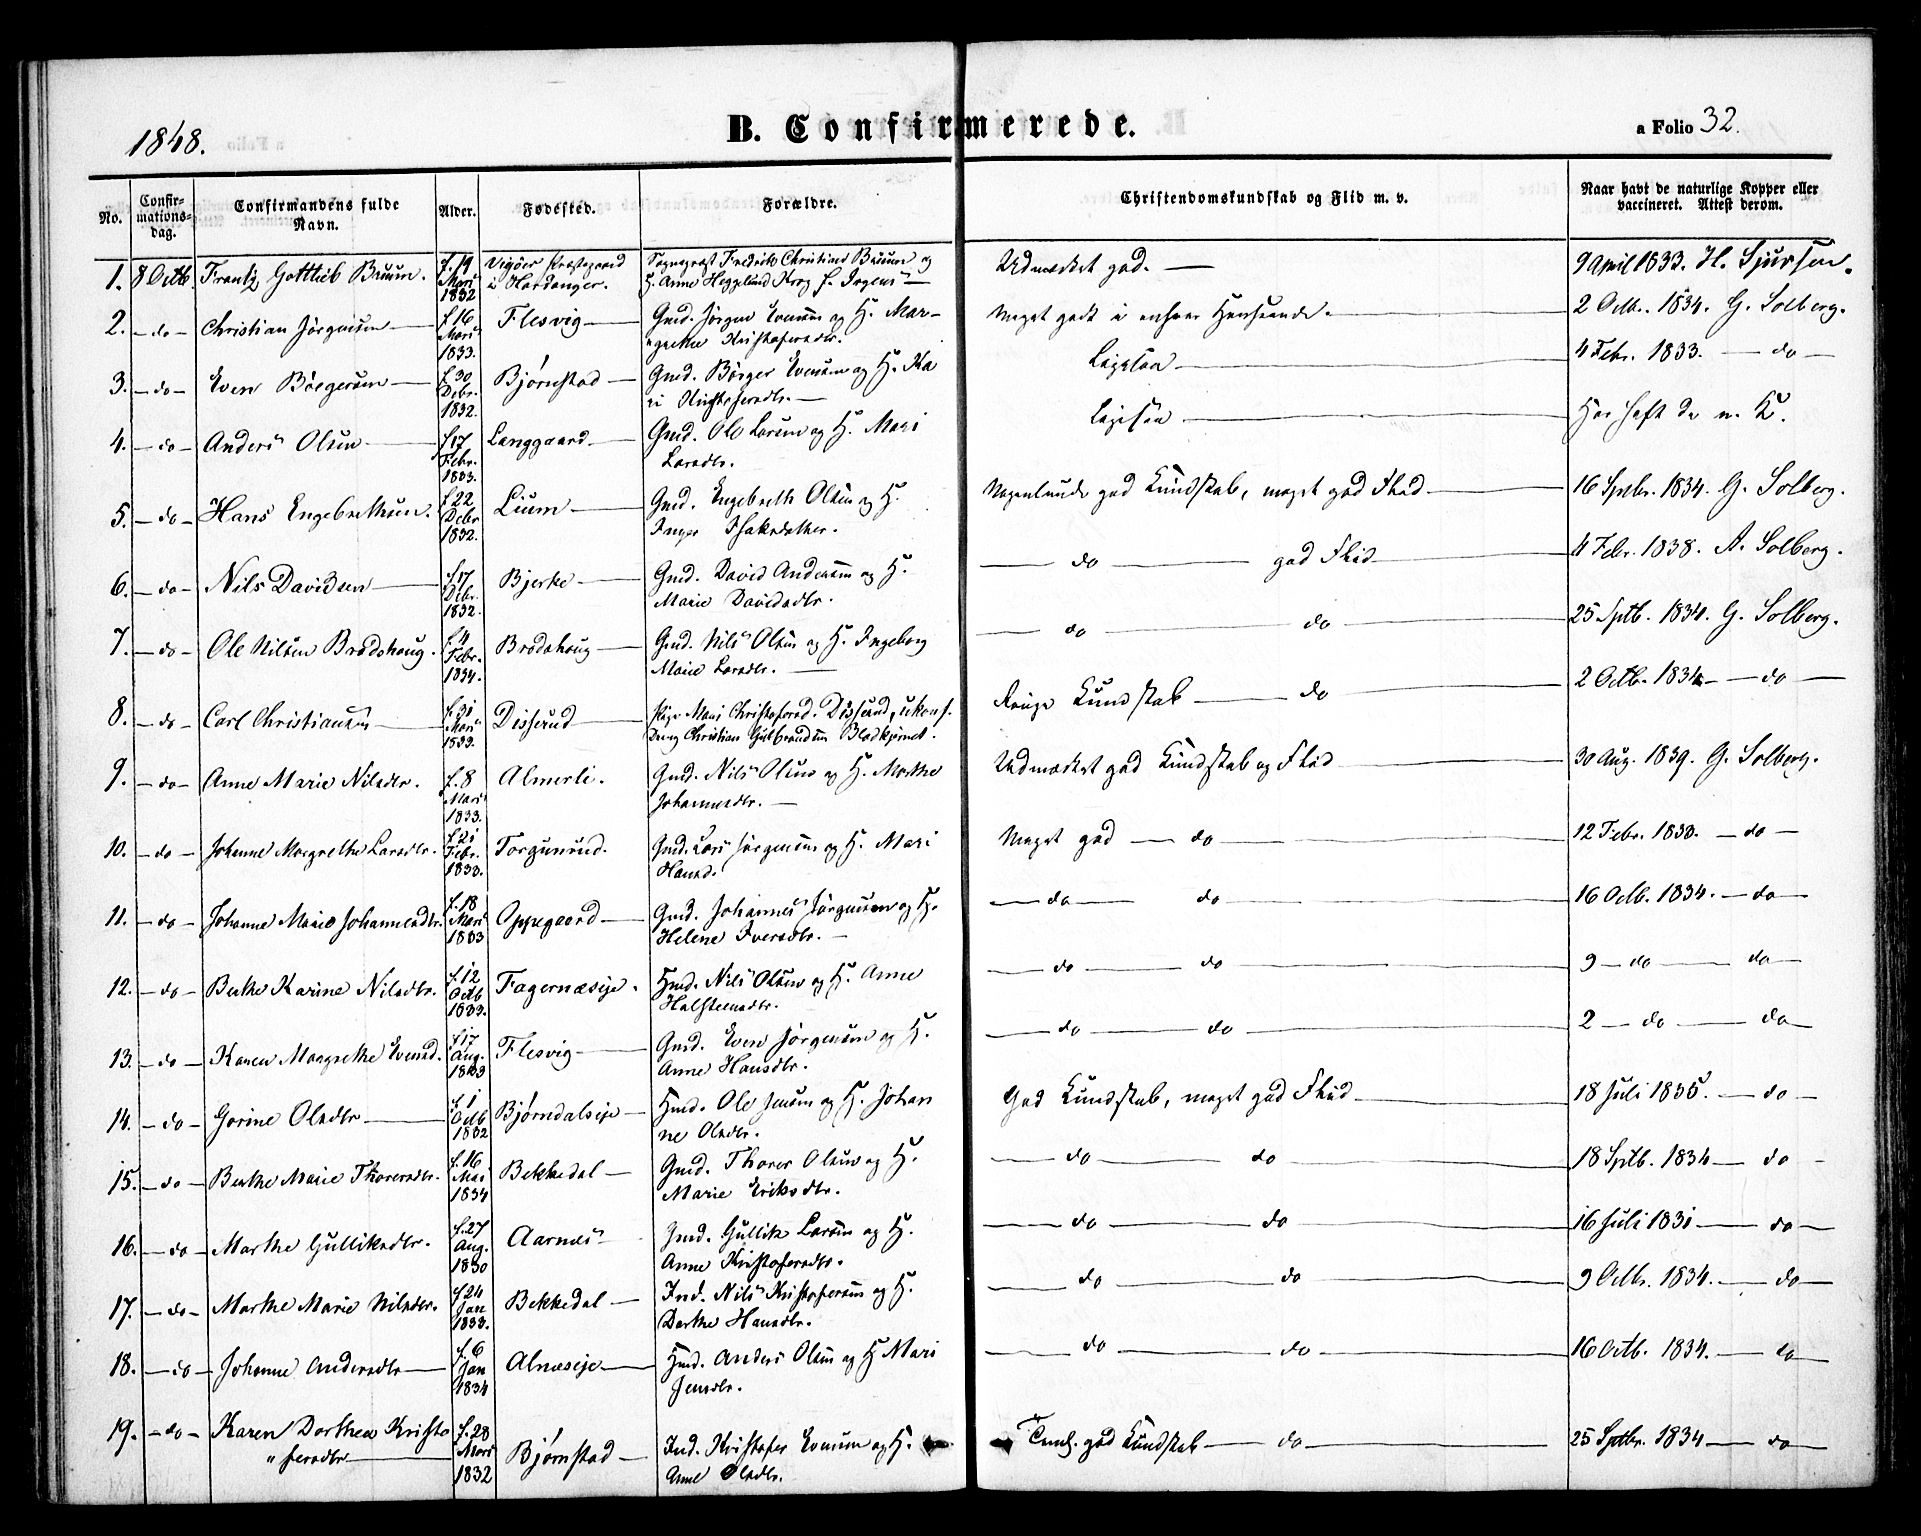 1848.
B. Confirmerede.
a Folio 32.
No. Confirmationsdag. Confirmandens fulde Navn. Alder. Fødested. Forældre. Christendomskundskab og Flid m. v. Naar havt de naturlige Kopper eller vaccineret. Attest derom.
1. 8 Octb. Frantz Gottlieb Bruun. f. 19 Mars 1832 Vigøer Præstegaard i Hardanger. Sognepræst Fredrik Christian Bruun og H. Anne Heggelund Krog f. Irgens — Udmærket god. — 9 April 1833. H. Sjursen.
2. — do — Christian Jörgensen — f. 16 Mars 1833. Flesvig — Gmd. Jörgen Evensen og H. Margrethe Kristofersdtr. Meget godt i enhver Henseende. 2 Octbr. 1834. G. Solberg.
3. — do — Even Börgersen — f. 30 Debr. 1832. Bjørnstad — Gmd. Börger Evensen og H. Kari Kristofersdtr. — Ligesaa — 4 Febr. 1833. — do —
4. — do — Anders Olsen — f. 17 Febr. 1833. Langgaard — Gmd. Ole Larsen og H. Mari Larsdtr. Ligesaa — Har haft de n. K.
5. — do — Hans Engebrethsen. f. 22 Debr 1832. Lium — Gmd. Engebreth Olsen og H. Inger Isaksdatter. Nogenlunde god Kundskab, meget god Flid — 16 Sptbr. 1834. G. Solberg.
6. — do — Nils Davidsen — f. 17 Debr. 1832. Bjerke — Gmd. David Andersen og H. Marie Davidsdtr. — do — god Flid — 4 Febr. 1838. A. Solberg.
7. — do — Ole Nilsen Brådshaug. f. 4 Febr. 1834. Brådshaug — Gmd. Nils Olsen og H. Ingeborg Marie Larsdtr. — — do — do — 25 Sptb. 1834. G. Solberg.
8. — do — Carl Christiansen f. 31 Mars 1833. Disserud — Pige Mari Christofersd. Disserud, ukonf. Dreng Christian Gulbrandsen Blodkjernet. Ringe Kundskab — do — 2 Octb. 1834 — do —
9. — do — Anne Marie Nilsdtr. f. 8 Mars 1833. Almerli. Gmd. Nils Olsen og H. Marthe Johannesdtr. — Udmærket god Kundskab og Flid — 30 Aug. 1839. G. Solberg.
10. — do — Johanne Margrethe Larsdtr. f. 21 Febr. 1833. Torgunrud. Gmd. Lars Jörgensen og H. Mari Hansd. Meget god — do — 12 Febr. 1833. — do —
11. — do — Johanne Marie Johannesdtr. f. 18 Mars 1833 Oppegaard — Gmd. Johannes Jörgensen og H. Helene Iversdtr. — — do — do — 16 Octb. 1834. — do —
12. — do — Berthe Karine Nilsdtr. f. 12 Octb 1833. Fagernæseje. Hmd. Nils Olsen og H. Anne Halsteensdtr. — do — do — 9 — do — do —
13. — do — Karen Margrethe Evensd. f. 17 Aug. 1833 Flesvig — Gmd. Even Jörgensen og H. Anne Hansdtr. — do — do — 2 — do — do —
14. — do — Gorine Olsdtr — f. 1 Octb 1832 Bjørndalseje — Hmd. Ole Jensen og H. Johanne Olsdtr. God Kundskab, meget god Flid — 18 Juli 1835. — do —
15. — do — Berthe Marie Thorersdtr. f. 16 Mai 1834 Bekkedal — Gmd. Thorer Olsen og H. Marie Eriksdtr. — do — do — 18 Sptb. 1834 — do —
16. — do — Marthe Gulliksdtr. f. 27 Aug. 1830 Aarnæs Gmd. Gullik Larsen og H. Anne Kristofersdtr. — do — do — 16 Juli 1831 — do —
17. — do — Marthe Marie Nilsdtr. f. 24 Jan 1833. Bekkedal — Ind. Nils Kristofersen og H. Dorthe Hansdtr. — do — do — 9 Octbr. 1834. — do —
18. — do — Johanne Andersdtr — f. 6 Jan 1834 Alnæseje — Hmd. Anders Olsen og H Mari Jensdtr. — do — do — 16 Octb. 1834. — do —
19. — do — Karen Dorthea Kristofersdtr — f. 28 Mars 1832 Bjørnstad — Ind. Kristofer Evensen og H. Anne Olsdtr. Teml. god Kundskab — do — 25 Sptbr. 1834 — do —